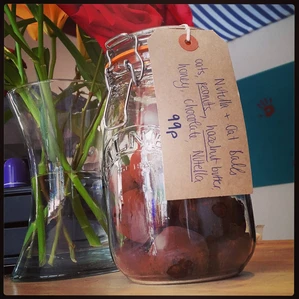 Nutella + Oat balls
oats, peanuts, hazelnut butter,
honey, chocolate, Nutella
99p